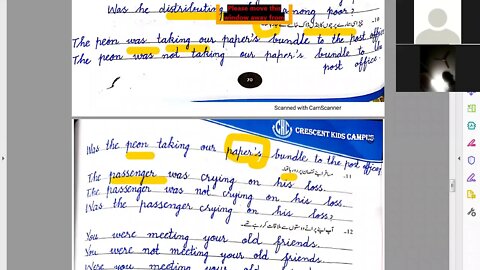 Was he distributing among poor?
Please move this
window away from
10-
The peon was taking our paper's bundle to the post office
The peon was not taking our paper's bundle to the
post office.
70
Scanned with CamScanner
CRESCENT KIDS CAMPUS
Was the peon taking our paper's bundle to the post office
11-
The passenger was crying on his loss.
The passenger was not crying on his loss.
Was the passenger crying on his loss?
12-
You were meeting your old friends.
You were not meeting your old friends.
Were you meeting your old friends